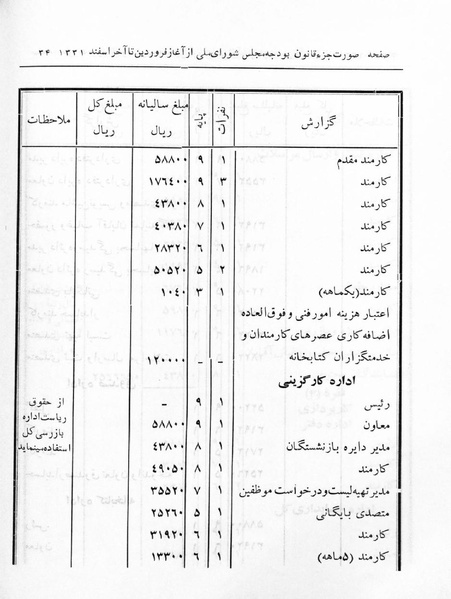 صفحه صورت جزء قانون بودجه مجلس شورای ملی از آغاز فروردین تا آخر اسفند ۱۳۳۱ ۳۴
گزارش نفرات پایه مبلغ سالیانه ریال مبلغ کل ریال ملاحظات
کارمند مقدم ۱ ۹ ۵۸۸۰۰
کارمند ۳ ۹ ۱۷۶٤۰۰
کارمند ۱ ۸ ٤۳۸۰۰
کارمند ۱ ۷ ٤۰۳۸۰
کارمند ۱ ۶ ۲۸۳۲۰
کارمند ۲ ۵ ۵۰۵۲۰
کارمند (یکماهه) ۱ ۳ ۱۰٤۰
اعتبار هزینه امور فنی و فوق العاده
اضافه کاری عصرهای کارمندان و
خدمتگزاران کتابخانه - - ۱۲۰۰۰۰
اداره کارگزینی
رئیس ۱ ۹ - از حقوق
معاون ۱ ۹ ۵۸۸۰۰ ریاست اداره
مدیر دایره بازنشستگان ۱ ۸ ٤۳۸۰۰ بازرسی کل
کارمند ۱ ۸ ٤۹۰۵۰ استفاده مینماید
مدیر تهیه لیست و درخواست موظفین ۱ ۷ ۳۵۵۲۰
متصدی بایگانی ۱ ۵ ۲۵۲۶۰
کارمند ۱ ۶ ۳۱۹۲۰
کارمند (۵ماهه) ۱ ۶ ۱۳۳۰۰